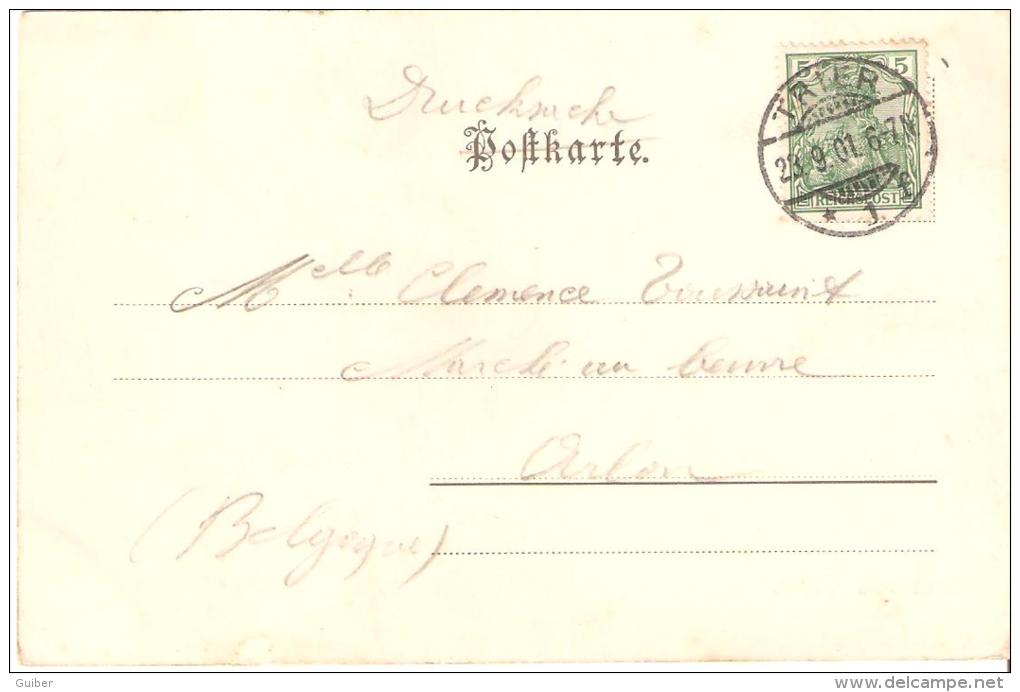 Drucksache
Postkarte.
5 5
REICHSPOST
TRIER
23.9.01.6-7N
* 1. e
Mlle Clemence Toussaint
Marché au beurre
Arlon
(Belgique)
Guiber
delcampe.net